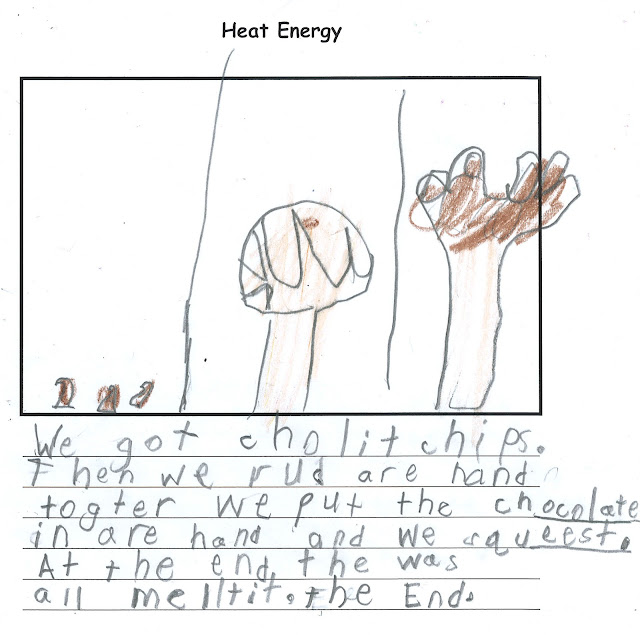 Heat Energy
We got cholit chips.
Then we rud are hand
togter we put the chocolate
in are hand and we squeest.
At the end, the was
all melltit. the End.